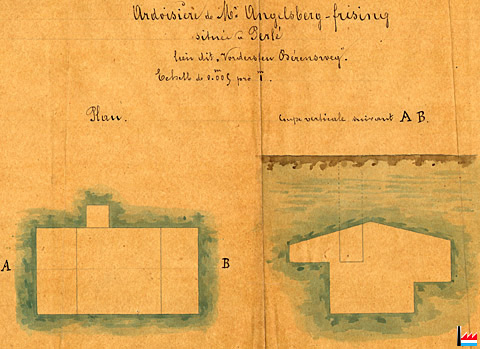 Ardoisière de Mr Angelsberg-frésing
située à Perlé
lieu dit „Vordersten Bërensweg“.
Echelle de 0.005 pro 1m.
Plan.
Coupe verticale suivant A B.
A
B